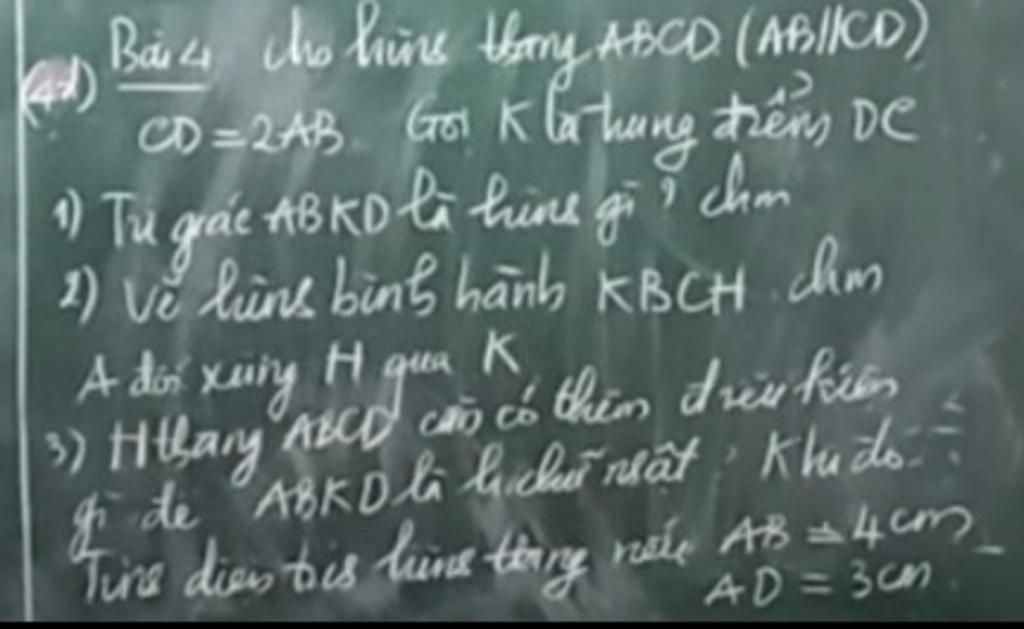 (4đ) Bài 4 cho hình thang ABCD (AB//CD)
CD = 2AB. Gọi K là trung điểm DC
1) Tứ giác ABKD là hình gì? chm
2) Vẽ hình bình hành KBCH. chm
A đối xứng H qua K
3) H thang ABCD cần có thêm điều kiện
gì để ABKD là h. chữ nhật. Khi đó
Tính diện tích hình thang nếu AB = 4cm
AD = 3cm